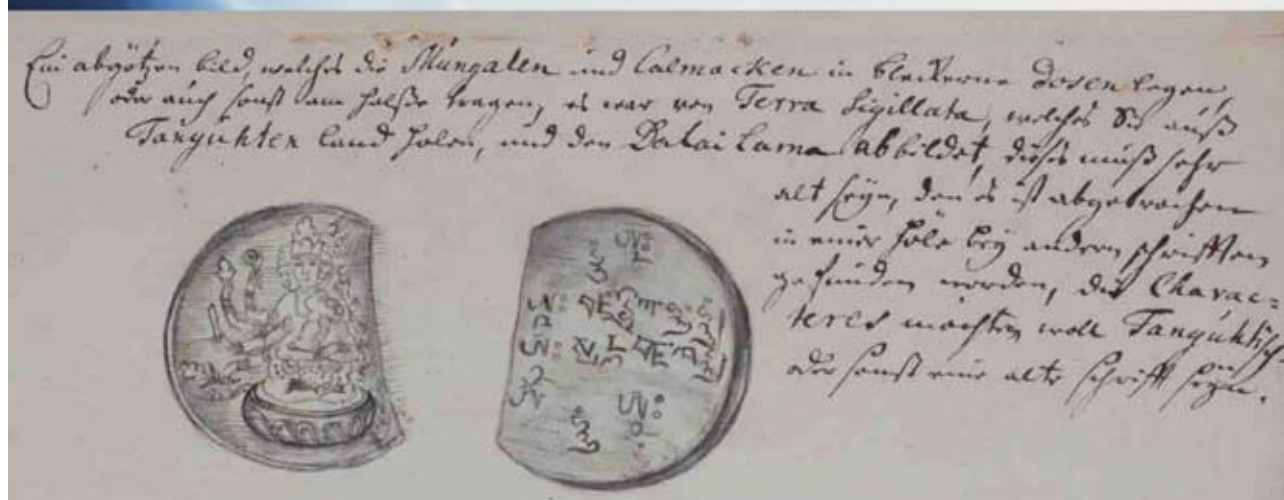 Ein abgötzen bild, welches die Mungalen und Calmacken in blecherne Dosen legen,
oder auch sonst am halße tragen, es war von Terra Sigillata, welches Sie auß
Tanguhten land holen, und den Dalai Lama abbildet, dieses muß sehr
alt seyn, den es ist abgebrochen
in einer höle bey andern schrifften
gefunden worden, die Charac=
teres möchten woll Tanguhtisch
oder sonst eine alte schrifft seyn.